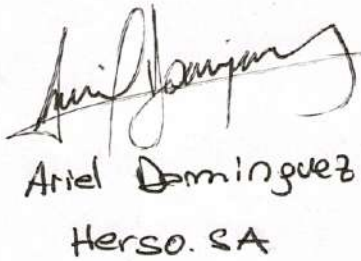 Ariel Dominguez
Herso. SA